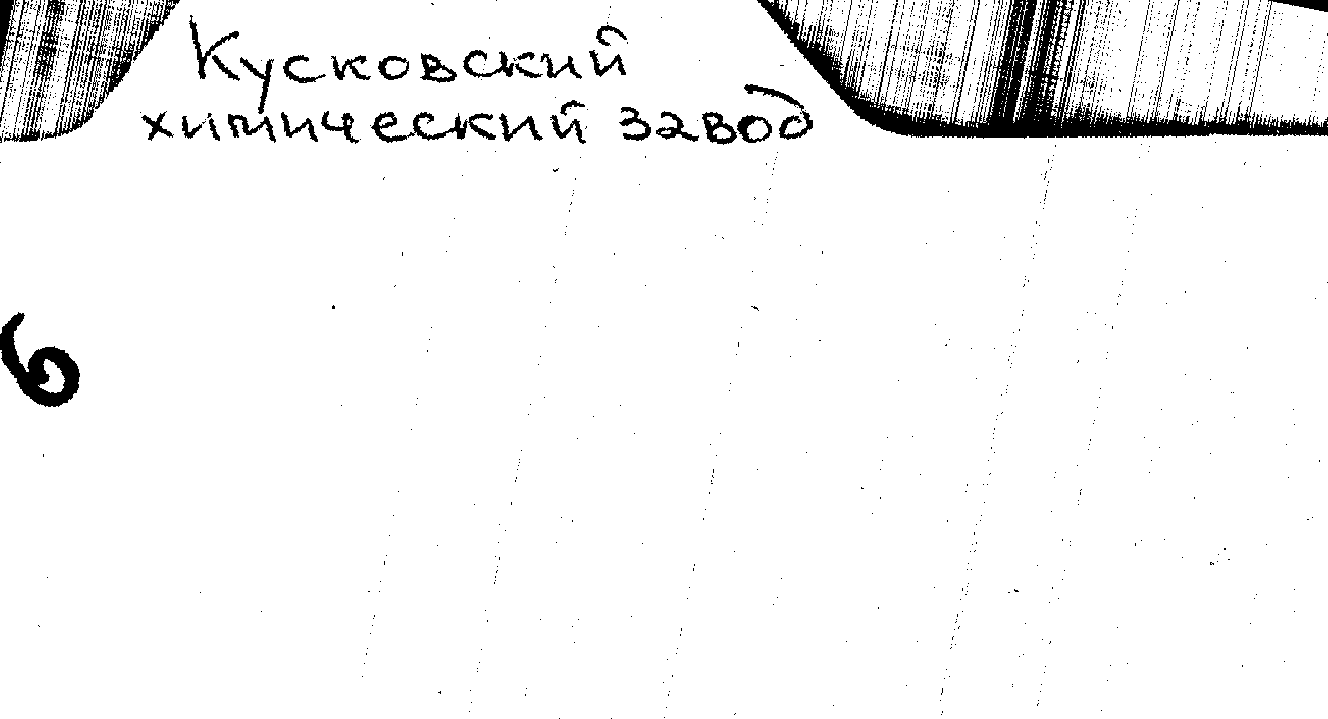 Кусковский
химический завод
6